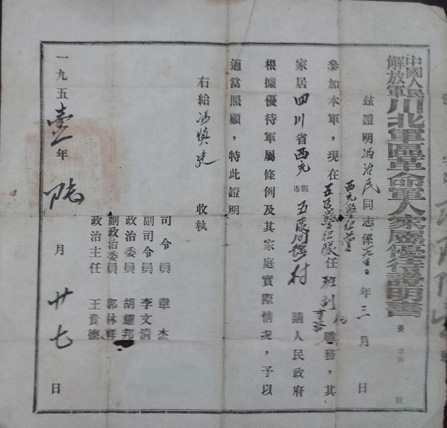 中國人民解放軍川北軍區革命軍人家屬優待證明書
茲證明馮治民同志係 年三月 日
西充警衛營
參加本軍，現在 任班副 職務，其
家居四川省西充縣市五區 村 請人民政府
根據優待軍屬條例及其家庭實際情况，予以
適當照顧，特此證明
右給馮煥 收執
司令員 韋杰
副司令員 李文清
政治委員 胡耀邦
副政治委員 郭林祥
政治主任 王貴德
一九五壹年陸月廿七日